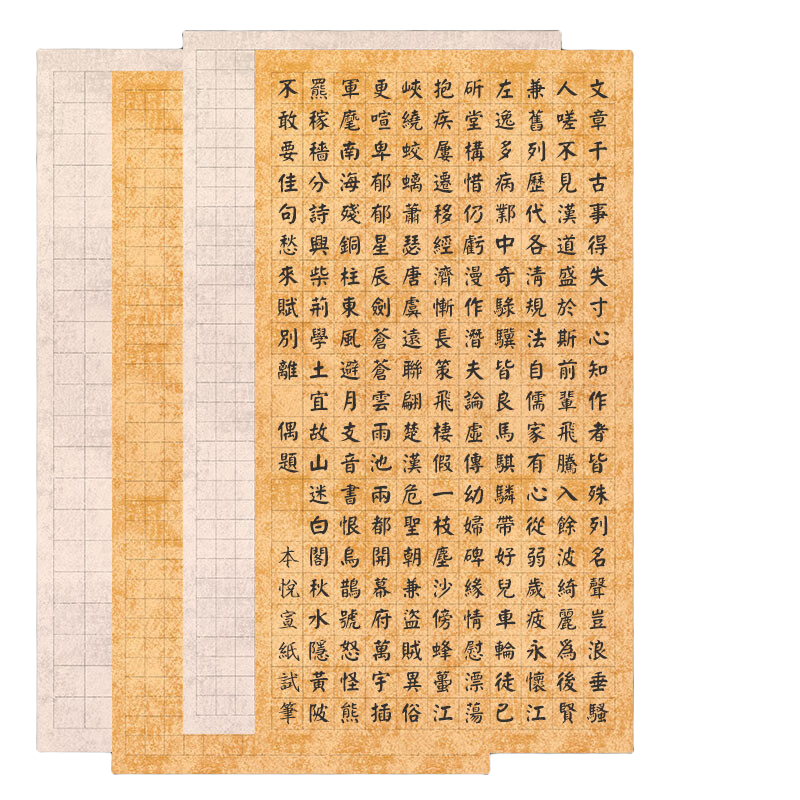 文章千古事得失寸心知作者皆殊列名聲豈浪垂騷
人嗟不見漢道盛於斯前輩飛騰入餘波綺麗爲後賢
兼舊列歷代各清規法自儒家有心從弱歲疲永懷江
左逸多病鄴中奇騄驥皆良馬騏驎帶好兒車輪徒已
斫堂構惜仍虧漫作潛夫論虛傳幼婦碑緣情慰漂蕩
抱疾屢遷移經濟慚長策飛棲假一枝塵沙傍蜂蠆江
峽繞蛟螭蕭瑟唐虞遠聯翩楚漢危聖朝兼盜賊異俗
更喧卑郁郁星辰劍蒼蒼雲雨池兩都開幕府萬宇插
軍麾南海殘銅柱東風避月支音書恨烏鵲號怒怪熊
羆稼穡分詩興柴荊學土宜故山迷白閣秋水隱黃陂
不敢要佳句愁來賦別離 偶題 本悅宣紙試筆